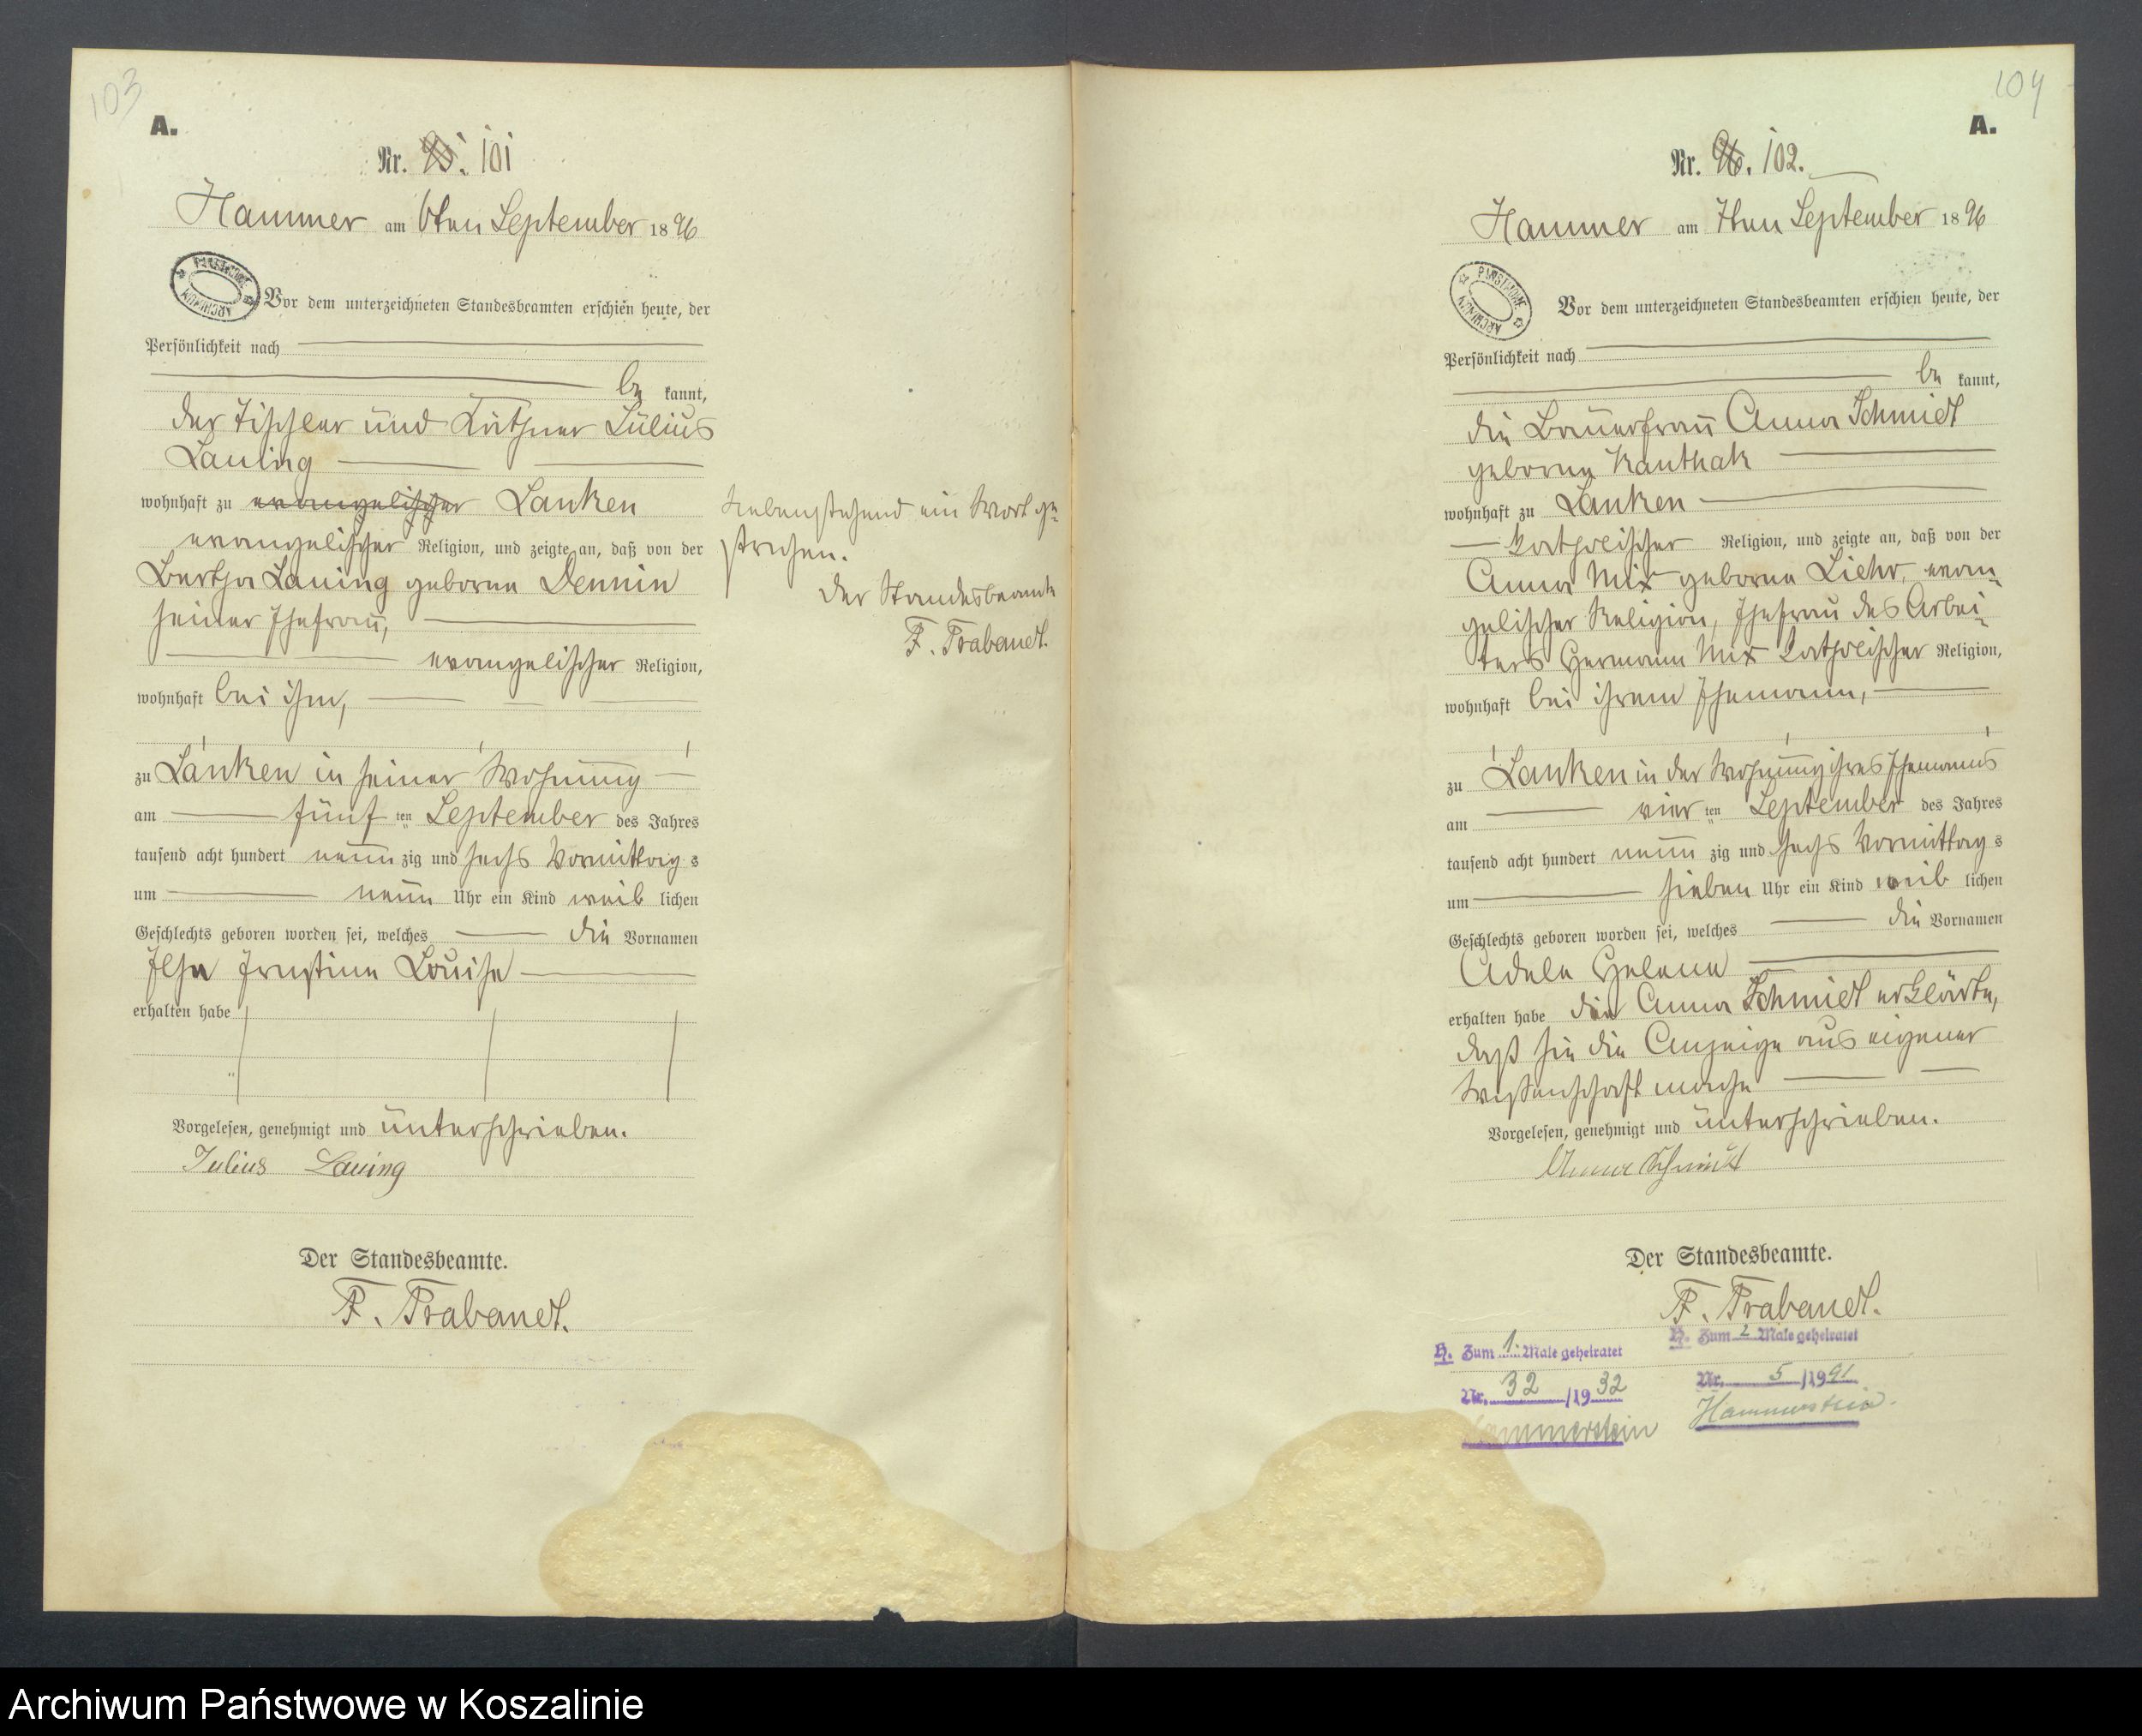 103
A.
Nr. 95. 101
Hammer am 6ten September 1896
PAŃSTWOWE ARCHIWUM
Vor dem unterzeichneten Standesbeamten erschien heute, der
Persönlichkeit nach
be kannt,
der Tischler und Käthner Julius
Lauing
wohnhaft zu evangelischer Lanken
evangelischer Religion, und zeigte an, daß von der
Bertha Lauing geborne Demnin
seiner Ehefrau,
evangelischer Religion,
wohnhaft bei ihm,
zu Lanken in seiner Wohnung
am fünf ten September des Jahres
tausend acht hundert neun zig und sechs Vormittag s
um neun Uhr ein Kind weib lichen
Geschlechts geboren worden sei, welches die Vornamen
Ilse Ernstine Louise
erhalten habe
Vorgelesen, genehmigt und unterschrieben.
Julius Lauing
Der Standesbeamte.
F. Trabandt.
Nebenstehend ein Wort ge-
strichen.
Der Standesbeamte
F. Trabandt.
104
A.
Nr. 96. 102.
Hammer am 7ten September 1896
PAŃSTWOWE ARCHIWUM
Vor dem unterzeichneten Standesbeamten erschien heute, der
Persönlichkeit nach
be kannt,
die Bauerfrau Anna Schmidt
geborne Kanthak
wohnhaft zu Lanken
katholischer Religion, und zeigte an, daß von der
Anna Mix geborne Liehr, evan-
gelischer Religion, Ehefrau des Arbei-
ters Hermann Mix katholischer Religion,
wohnhaft bei ihrem Ehemann,
zu Lanken in der Wohnung ihres Ehemanns
am vier ten September des Jahres
tausend acht hundert neun zig und sechs Vormittag s
um sieben Uhr ein Kind weib lichen
Geschlechts geboren worden sei, welches die Vornamen
Adele Helene
erhalten habe die Anna Schmidt erklärte,
daß sie die Anzeige aus eigener
Wissenschaft mache
Vorgelesen, genehmigt und unterschrieben.
Anna Schmidt
Der Standesbeamte.
F. Trabandt.
H. Zum 1. Male geheiratet
Nr. 32 /1932
Hammerstein
H. Zum 2 Male geheiratet
Nr. 5 /1941
Hammerstein.
Archiwum Państwowe w Koszalinie